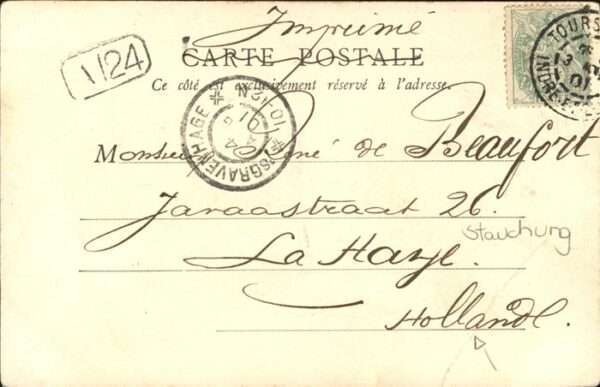 Imprimé
CARTE POSTALE
Ce côté est exclusivement réservé à l'adresse.
1124
TOURS
INDRE-ET-LOIRE
'SGRAVENHAGE
10-12N
Monsieur René de Beaufort
Javaastraat 26.
Stauchung
La Haye.
Hollande.